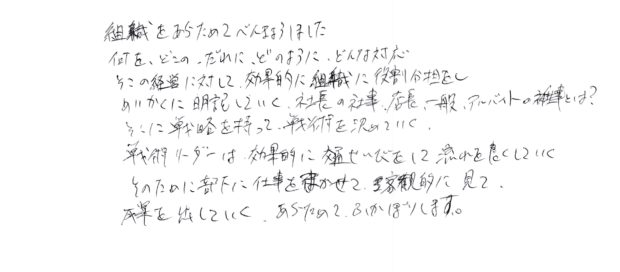 組織をあらためてべんきょうしました
何を、どこの、だれに、どのように、どんな対応
そこの経営に対して、効果的に組織に役割分担をし
めいかくに明記していく、社長の仕事、店長、一般、アルバイトの仕事とは?
そこに戦略を持って、戦術を決めていく、
戦術リーダーは、効果的に交通せいびをして流れを良くしていく
そのために部下に仕事をまかせて、客観的に見て、
成果を出していく、あらためて、ふかぼりします。